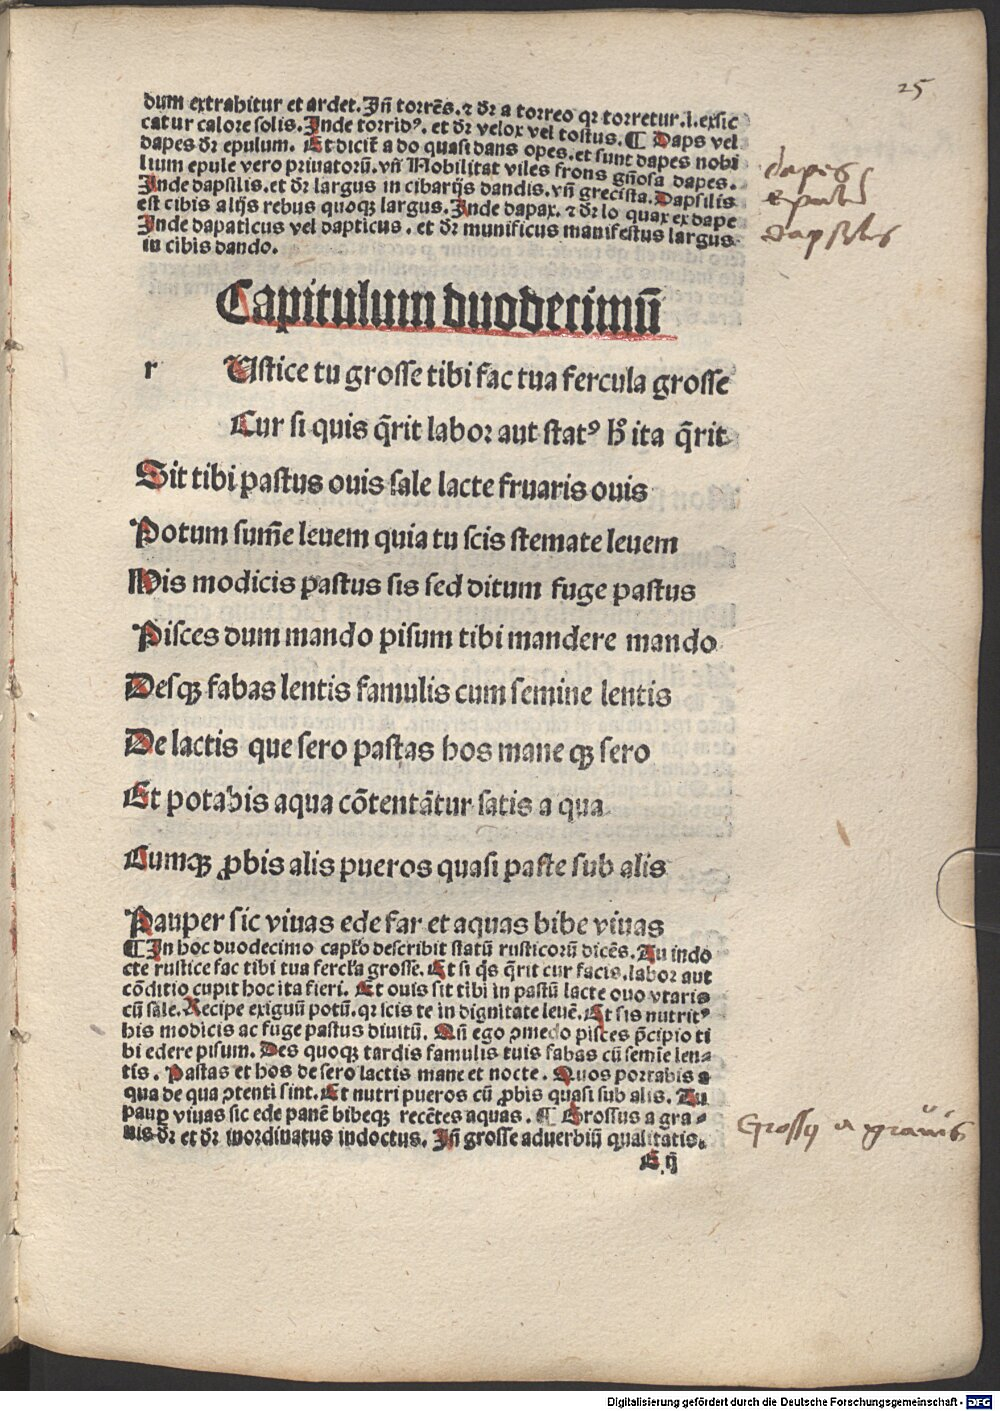 25
dum extrahitur et ardet. Jñ torrẽs. ⁊ dr̄ a torreo qꝛ torretur. i. exsic
catur calore solis. Inde torridꝰ. et dr̄ velox vel tostus. ¶ Daps vel
dapes dr̄ epulum. Et dicit̃ a do quasi dans opes. et sunt dapes nobi
lium epule vero priuatorū. vñ Nobilitat viles frons gñosa dapes.
Inde dapsilis. et dr̄ largus in cibarijs dandis. vñ grecista. Dapsilis
est cibis alijs rebus quoqꝫ largus. Inde dapax. ⁊ dr̄ lo quax ex dape
Inde dapaticus vel dapticus. et dr̄ munificus manifestus largus
in cibis dando.
dapes
epulū
dapsilis
Capitulum duodecimū
r Ustice tu grosse tibi fac tua fercula grosse
Cur si quis q̄rit labor aut statꝰ h̄ ita q̄rit
Sit tibi pastus ouis sale lacte fruaris ouis
Potum sum̄e leuem quia tu scis stemate leuem
His modicis pastus sis sed ditum fuge pastus
Pisces dum mando pisum tibi mandere mando
Desqꝫ fabas lentis famulis cum semine lentis
De lactis que sero pastas hos mane qꝫ sero
Et potabis aqua cōtentātur satis a qua
Cumqꝫ ꝓbis alis pueros quasi paste sub alis
Pauper sic viuas ede far et aquas bibe viuas
¶ In hoc duodecimo cap̄lo describit statū rusticorū dicēs. Tu indo
cte rustice fac tibi tua fercl̄a grosse. Et si q̄s q̄rit cur facis. labor aut
cōditio cupit hoc ita fieri. Et ouis sit tibi in pastū lacte ouo vtaris
cū sale. Recipe exiguū potū. qꝛ scis te in dignitate leuē. Et sis nutritꝰ
his modicis ac fuge pastus diuitū. Qñ ego ꝯmedo pisces p̄cipio ti
bi edere pisum. Des quoqꝫ tardis famulis tuis fabas cū semīe len⸗
tis. Pastas et hos de sero lactis mane et nocte. Quos portabis a
qua de qua ꝯtenti sint. Et nutri pueros cū ꝓbis quasi sub alis. Tu
paup̲ viuas sic ede panē bibeqꝫ recētes aquas. ¶ Grossus a gra⸗
uis dr̄ et dr̄ inordinatus indoctus. Jñ grosse aduerbiū qualitatis.
Grossꝰ a grauis
E ij
Digitalisierung gefördert durch die Deutsche Forschungsgemeinschaft - DFG